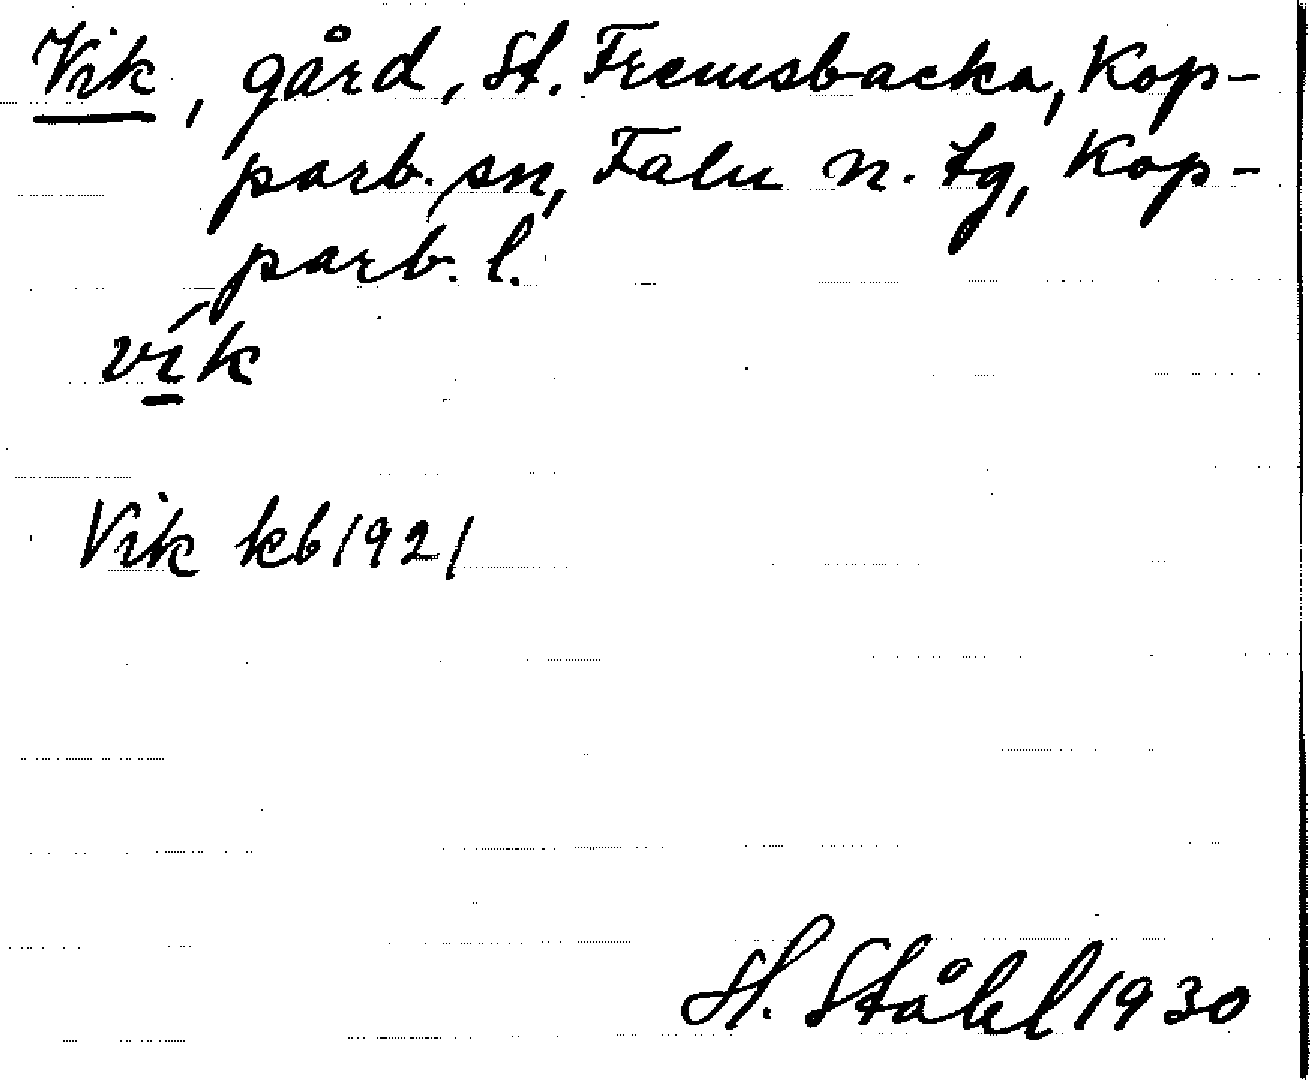 Vik, gård, St. Fremsbacka, Kop-
parb. sn, Falu n. tg, Kop-
parb. l.
vík
Vik kb 1921
H. Ståhl 1930